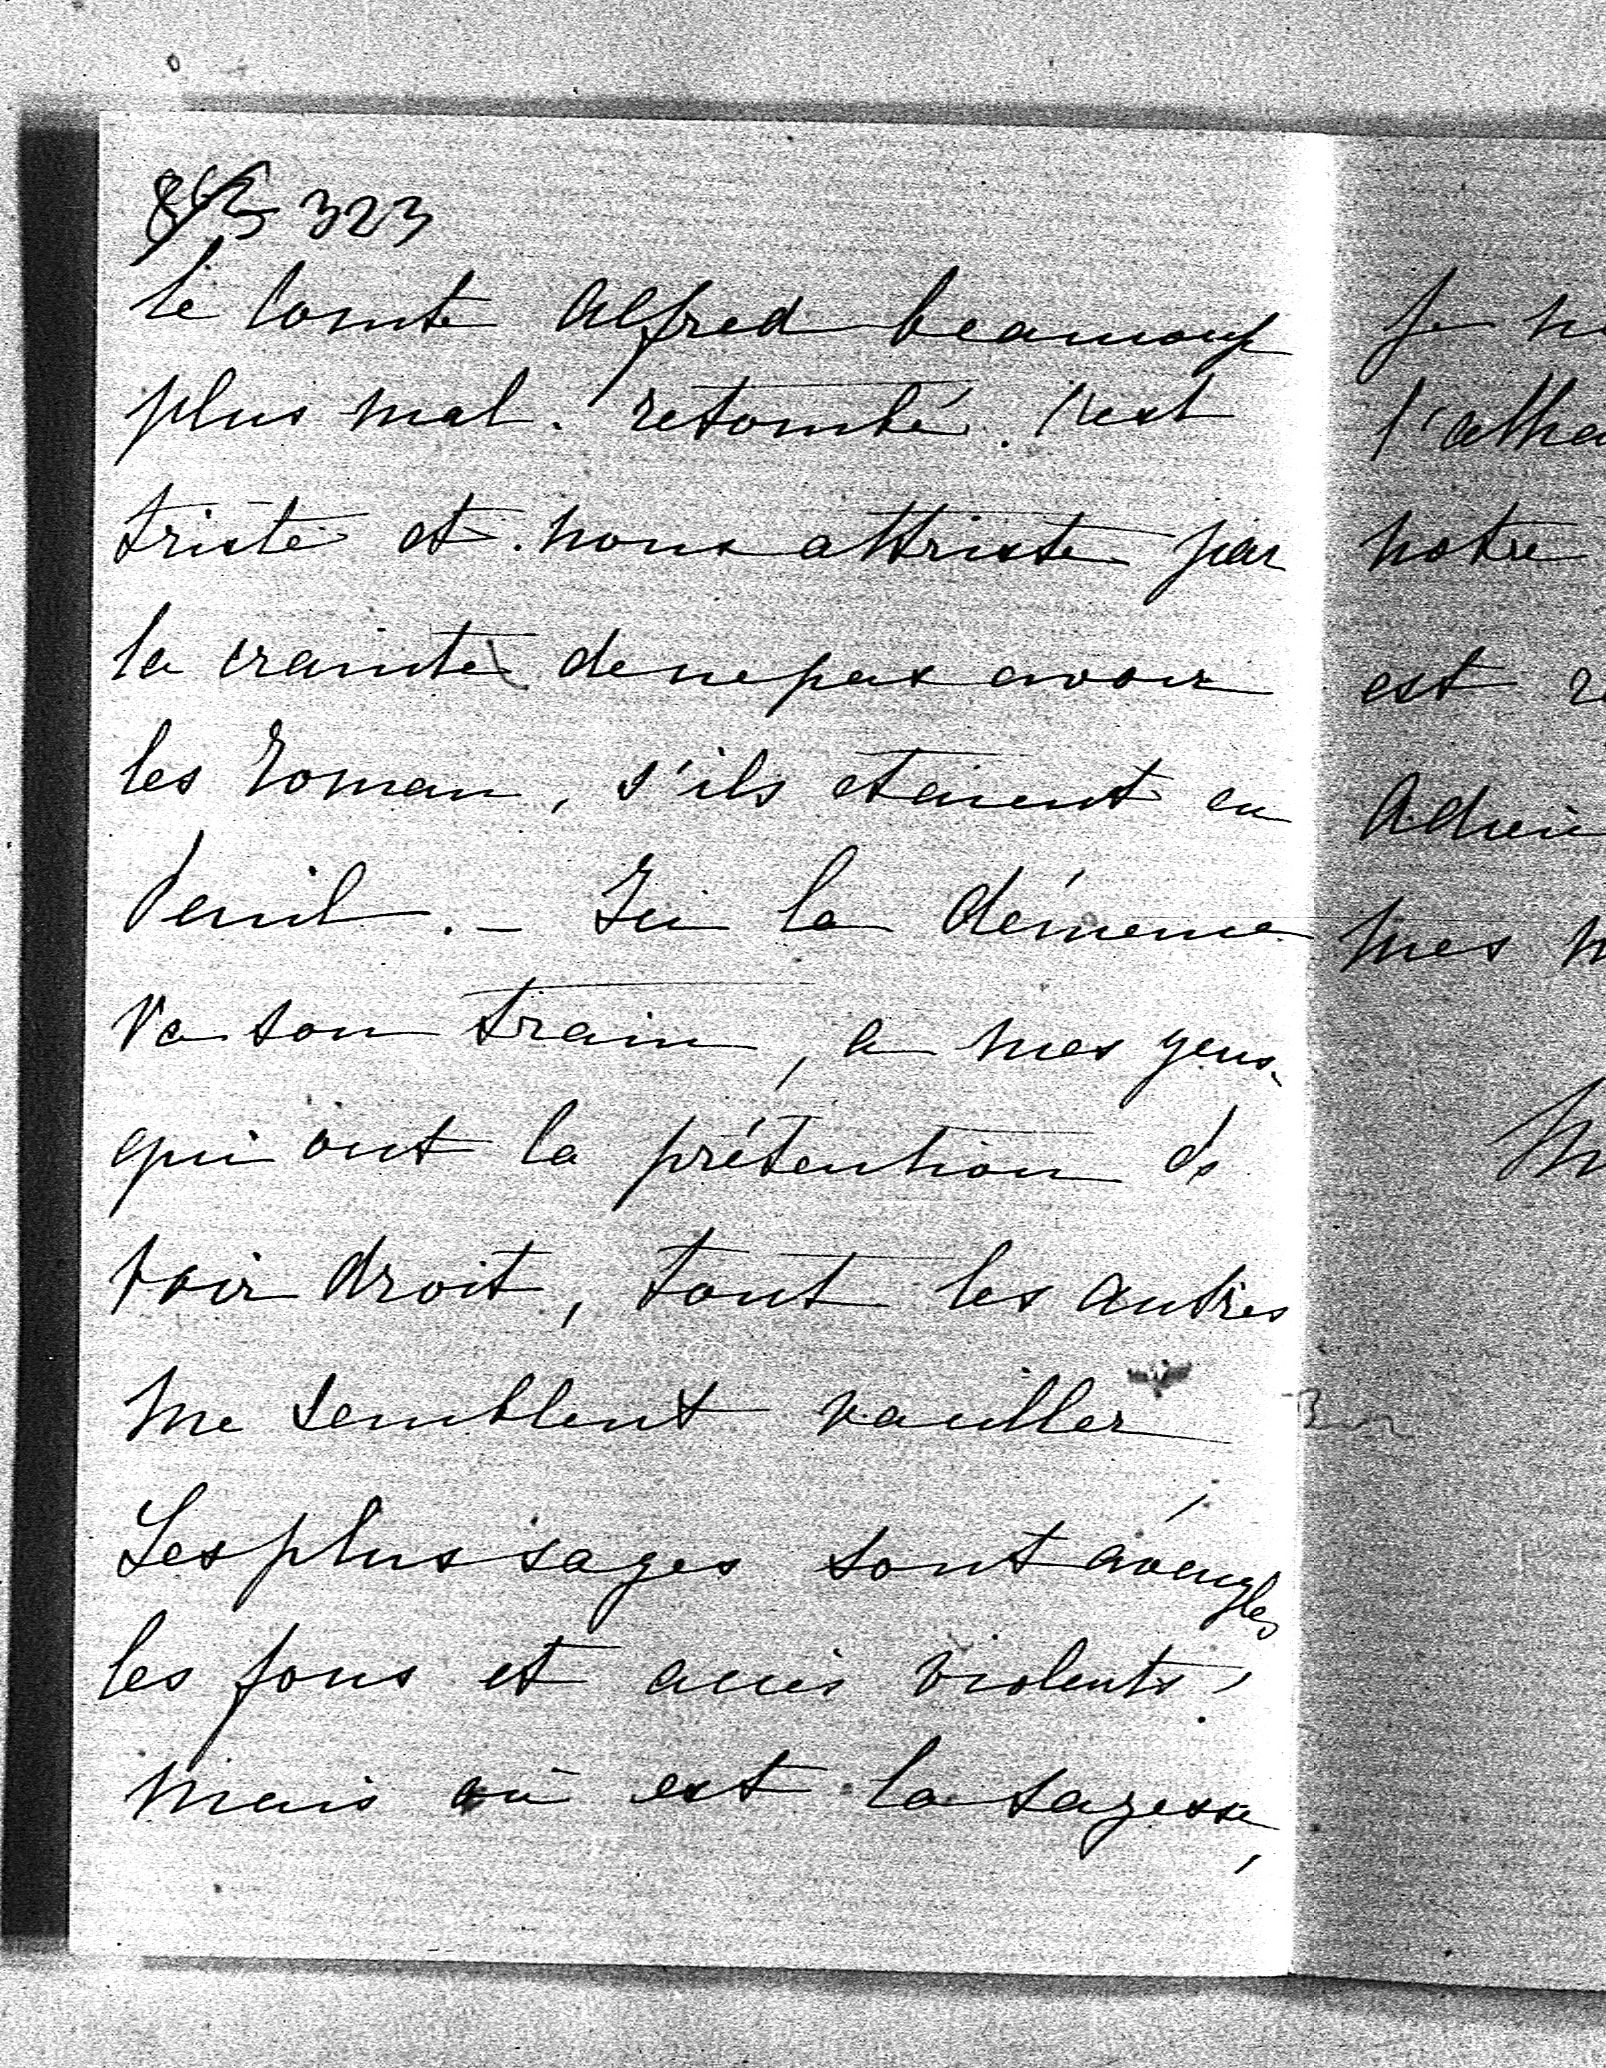 323
le Comte Alfred beaucoup
plus mal. retombé. C'est
triste et nous attriste par
la crainte de ne pas avoir
les Roman, s'ils etaient en
deuil. – Ici la démence
va son train, a mes yeux
qui ont la prétention de
voir droit, tout les autres
me semblent vaciller,
Les plus sages sont aveugles
les fous et accès violents,
mais où est la sagesse,
notre
est
mes